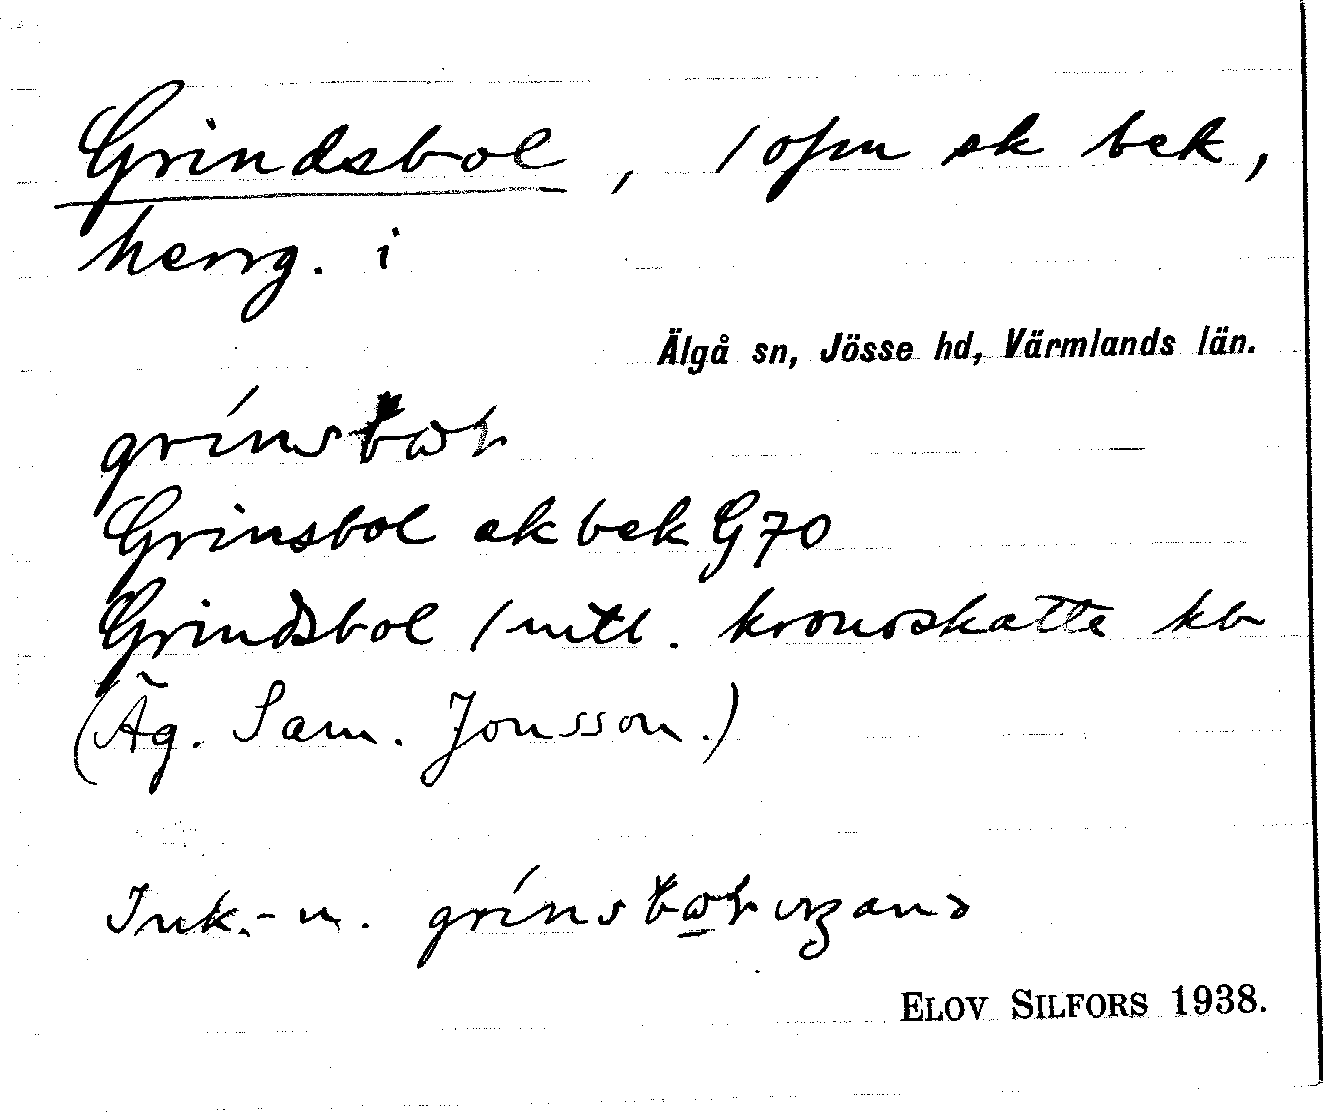 Grindsbol, 1 ofm sk bek,
herrg. i
Älgå sn, Jösse hd, Värmlands län.
Grinsbol sk bek G70
Grindsbol 1 mtl. kronoskatte kb
(Äg. Sam. Jonsson.)
Ink.-n.
ELOV SILFORS 1938.